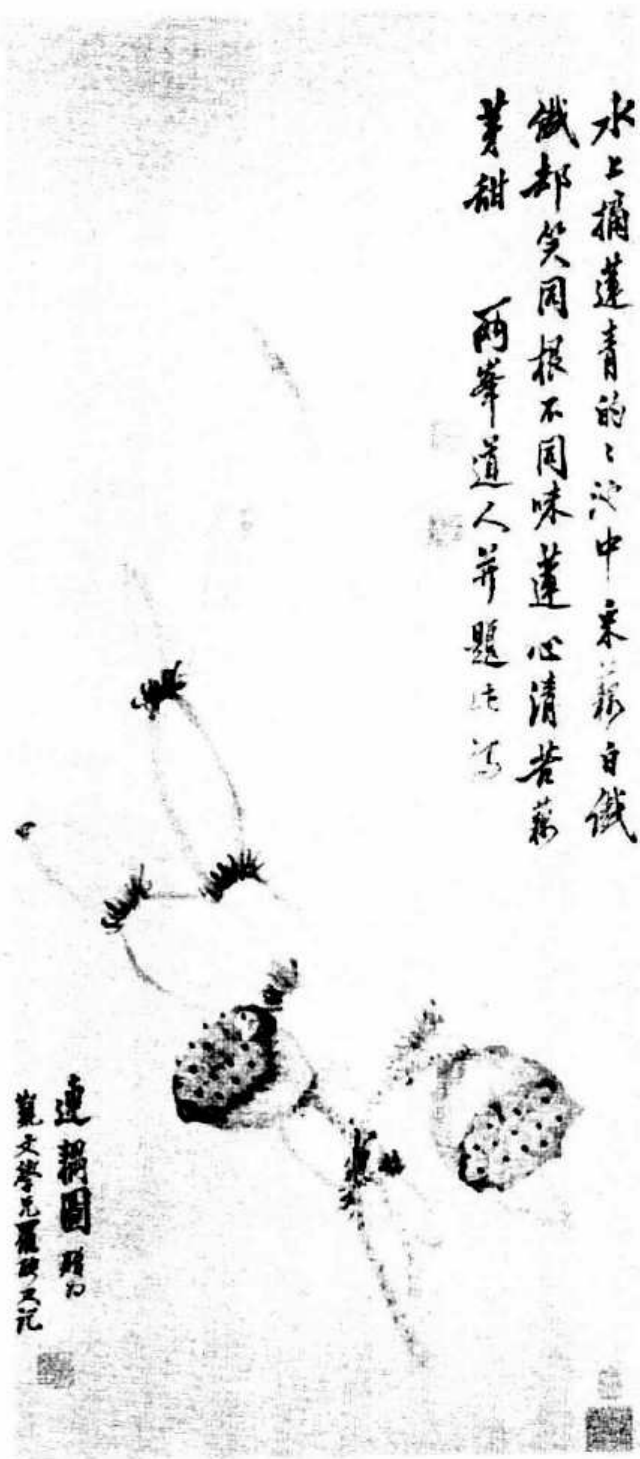 水上摘蓮青的〻泥中采藕白纖
纖却笑同根不同味蓮心清苦藕
芽甜 兩峯道人并題
連耦圖
文學兄羅聘又記